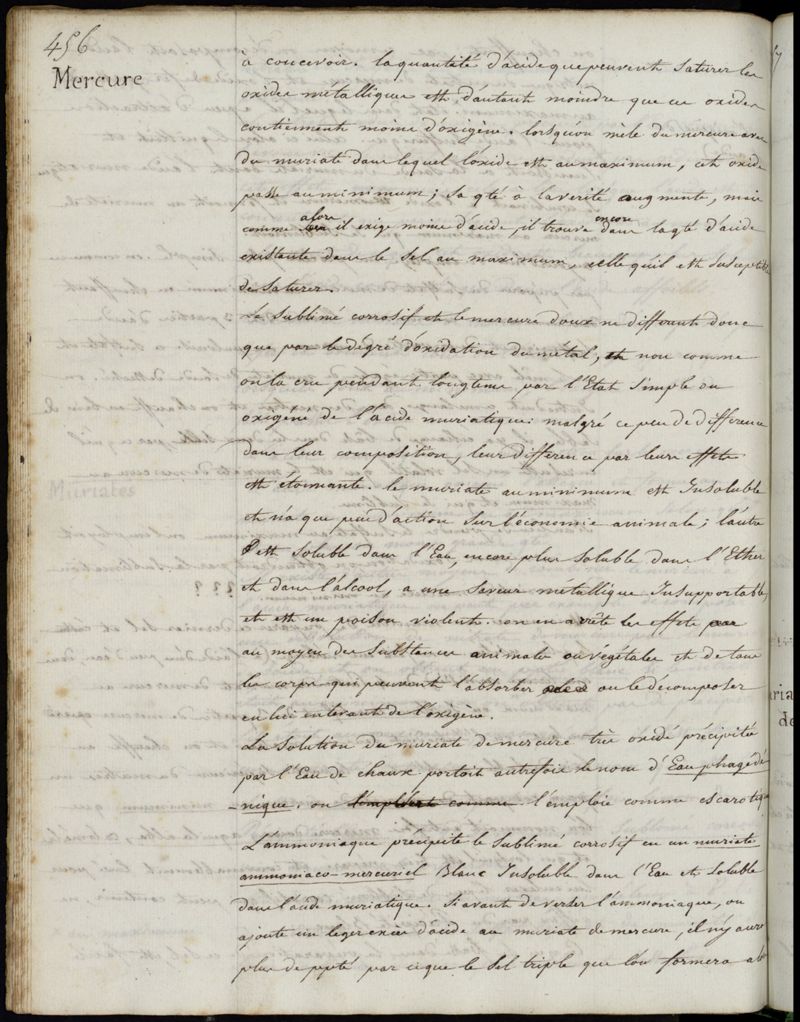 456
Mercure
à concevoir. la quantité d'acide que peuvent saturer les
oxides metalliques est d'autant moindre que ces oxides
contiennent moins d'oxigène. lorsqu'on mele du mercure avec
du muriate dans lequel l'oxide est au maximum, cet oxide
passe au minimum ; sa qté à la verité augmente, mais
comme alors il exige moins d'acide, il trouve encore dans la qté d'acide
existante dans le sel au maximum, celle qu'il est susceptible
de saturer.
Le sublimé corrosif et le mercure doux ne different donc
que par le dégré d'oxidation du métal, et non comme
on l'a cru pendant longtems par l'Etat simple ou
oxigéné de l'acide muriatique. malgré ce peu de difference
dans leur composition, leur difference par leurs effets
est étonnante. le muriate au minimum est Insoluble
et n'a que peu d'action sur l'économie animale ; l'autre
est soluble dans l'Eau, encore plus soluble dans l'Ether
et dans l'álcool, a une saveur métallique Insupportable,
et est un poison violent. on en arrête les effets
au moyen des substances animales ou végétales et de tous
les corps qui peuvent l'absorber ou le décomposer
en lui enlevant de l'oxigène.
La solution du muriate de mercure très oxidé précipitée
par l'Eau de chaux portoit autrefois le nom d'Eau phagédé-
-nique. on l'emploie comme escarotique
L'ammoniaque précipite le sublimé corrosif en un muriate
ammoniaco-mercuriel Blanc Insoluble dans l'Eau et soluble
dans l'acide muriatique. Si avant de verser l'ammoniaque, on
ajoute un leger excès d'acide au muriate de mercure, il n'y aura
plus de ppté par ce que le sel triple que l'on formera
Muriates